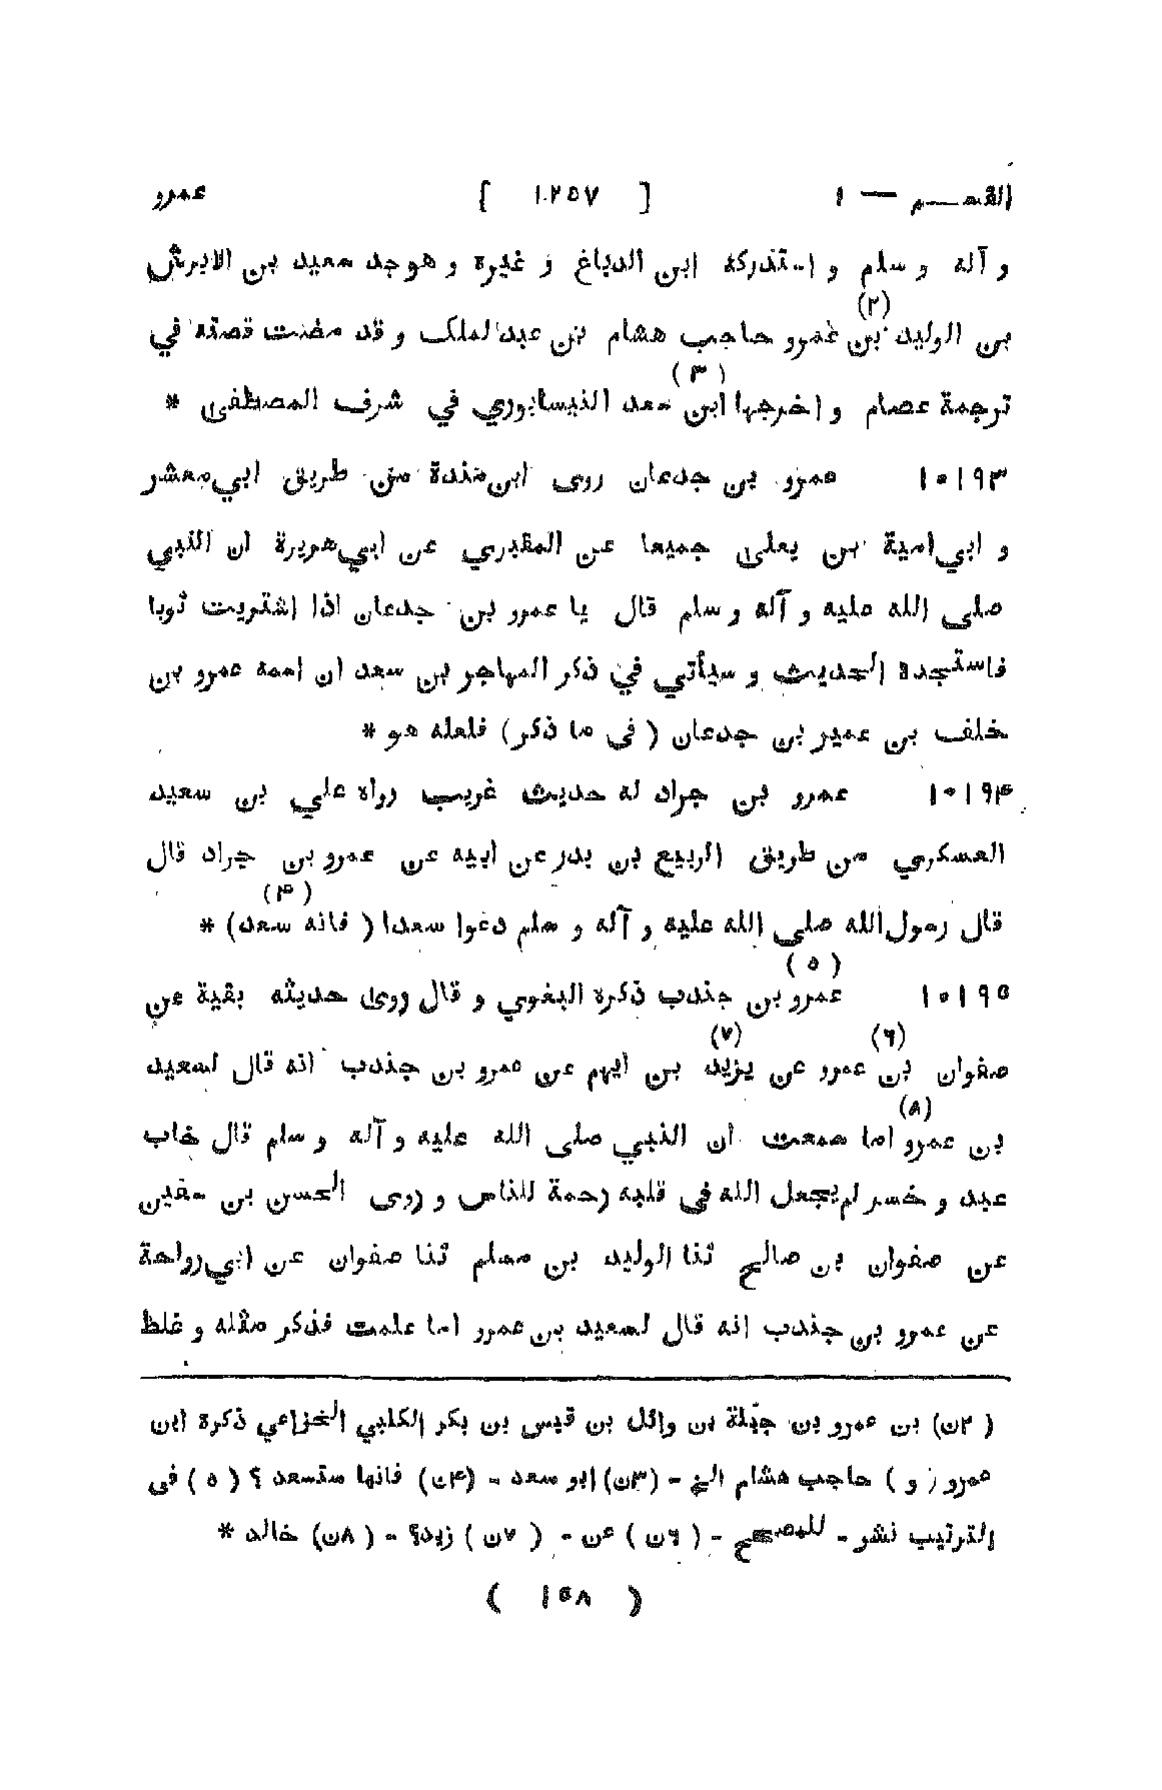 القسم — ١ [ ١٠٢٥٧ ] عمرو
و آله و سلم و استدركه ابن الدباغ و غيره و هو جد سعيد بن الابرش
بن الوليد بن عمرو (٢) حاجب هشام بن عبدالملك و قد مضت قصته في
ترجمة عصام و اخرجها ابن سعد (٣) النيسابوري في شرف المصطفى *
١٠١٩٣ عمرو بن جدعان روى ابن مندة من طريق ابي معشر
و ابي امية بن يعلى جميعا عن المقبري عن ابي هريرة ان النبي
صلى الله عليه و آله و سلم قال يا عمرو بن جدعان اذا اشتريت ثوبا
فاستجده الحديث و سيأتي في ذكر المهاجر بن سعد ان اسمه عمرو بن
خلف بن عمير بن جدعان ( في ما ذكر ) فلعله هو *
١٠١٩٤ عمرو بن جراد له حديث غريب رواه علي بن سعيد
العسكري من طريق الربيع بن بدر عن ابيه عن عمرو بن جراد قال
قال رسول الله صلى الله عليه و آله و سلم دعوا سعدا ( فانه سعد ) (۴) *
١٠١٩٥ عمرو بن جندب (٥) ذكره البغوي و قال روى حديثه بقية عن
صفوان بن (٦) عمرو عن يزيد (٧) بن ايهم عن عمرو بن جندب انه قال لسعيد
بن عمرو (٨) اما سمعت ان النبي صلى الله عليه و آله و سلم قال خاب
عبد و خسر لم يجعل الله في قلبه رحمة للناس و روى الحسن بن سفين
عن صفوان بن صالح ثنا الوليد بن مسلم ثنا صفوان عن ابي رواحة
عن عمرو بن جندب انه قال لسعيد بن عمرو اما علمت فذكر مثله و غلط
( ٢ن ) بن عمرو بن جبلة بن وائل بن قيس بن بكر الكلبي الخزاعي ذكره ابن
عمرو ( و ) حاجب هشام الخ - (٣ن) ابو سعد - (۴ن) فانها ستسعد ؟ ( ٥ ) في
الترتيب نشو - للمصحح - ( ٦ن ) عن - ( ٧ن ) زيد؟ - ( ٨ن ) خالد *
( ١٥٨ )